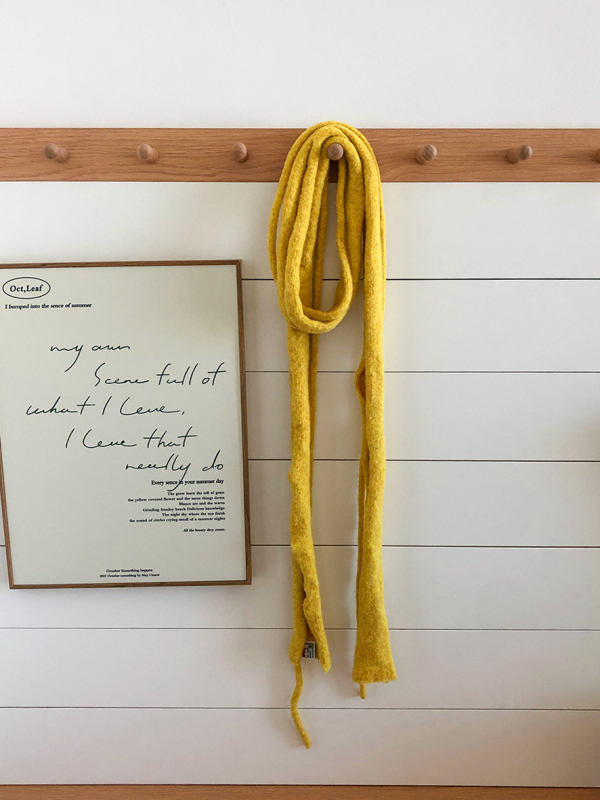 Oct,Leaf
I bumped into the sence of summer
my own
Scene full of
what I love,
I love that
really do
Every sence in your summer day
The green leave the tell of grass
the yellow covered flower and the same things down
Blance are and the warm
Grinding Sunday beach Delicious knowledge
The night sky where the sun finish
the sound of cicadas crying smell of a summer nights
All the beauty they create.
October Something happen